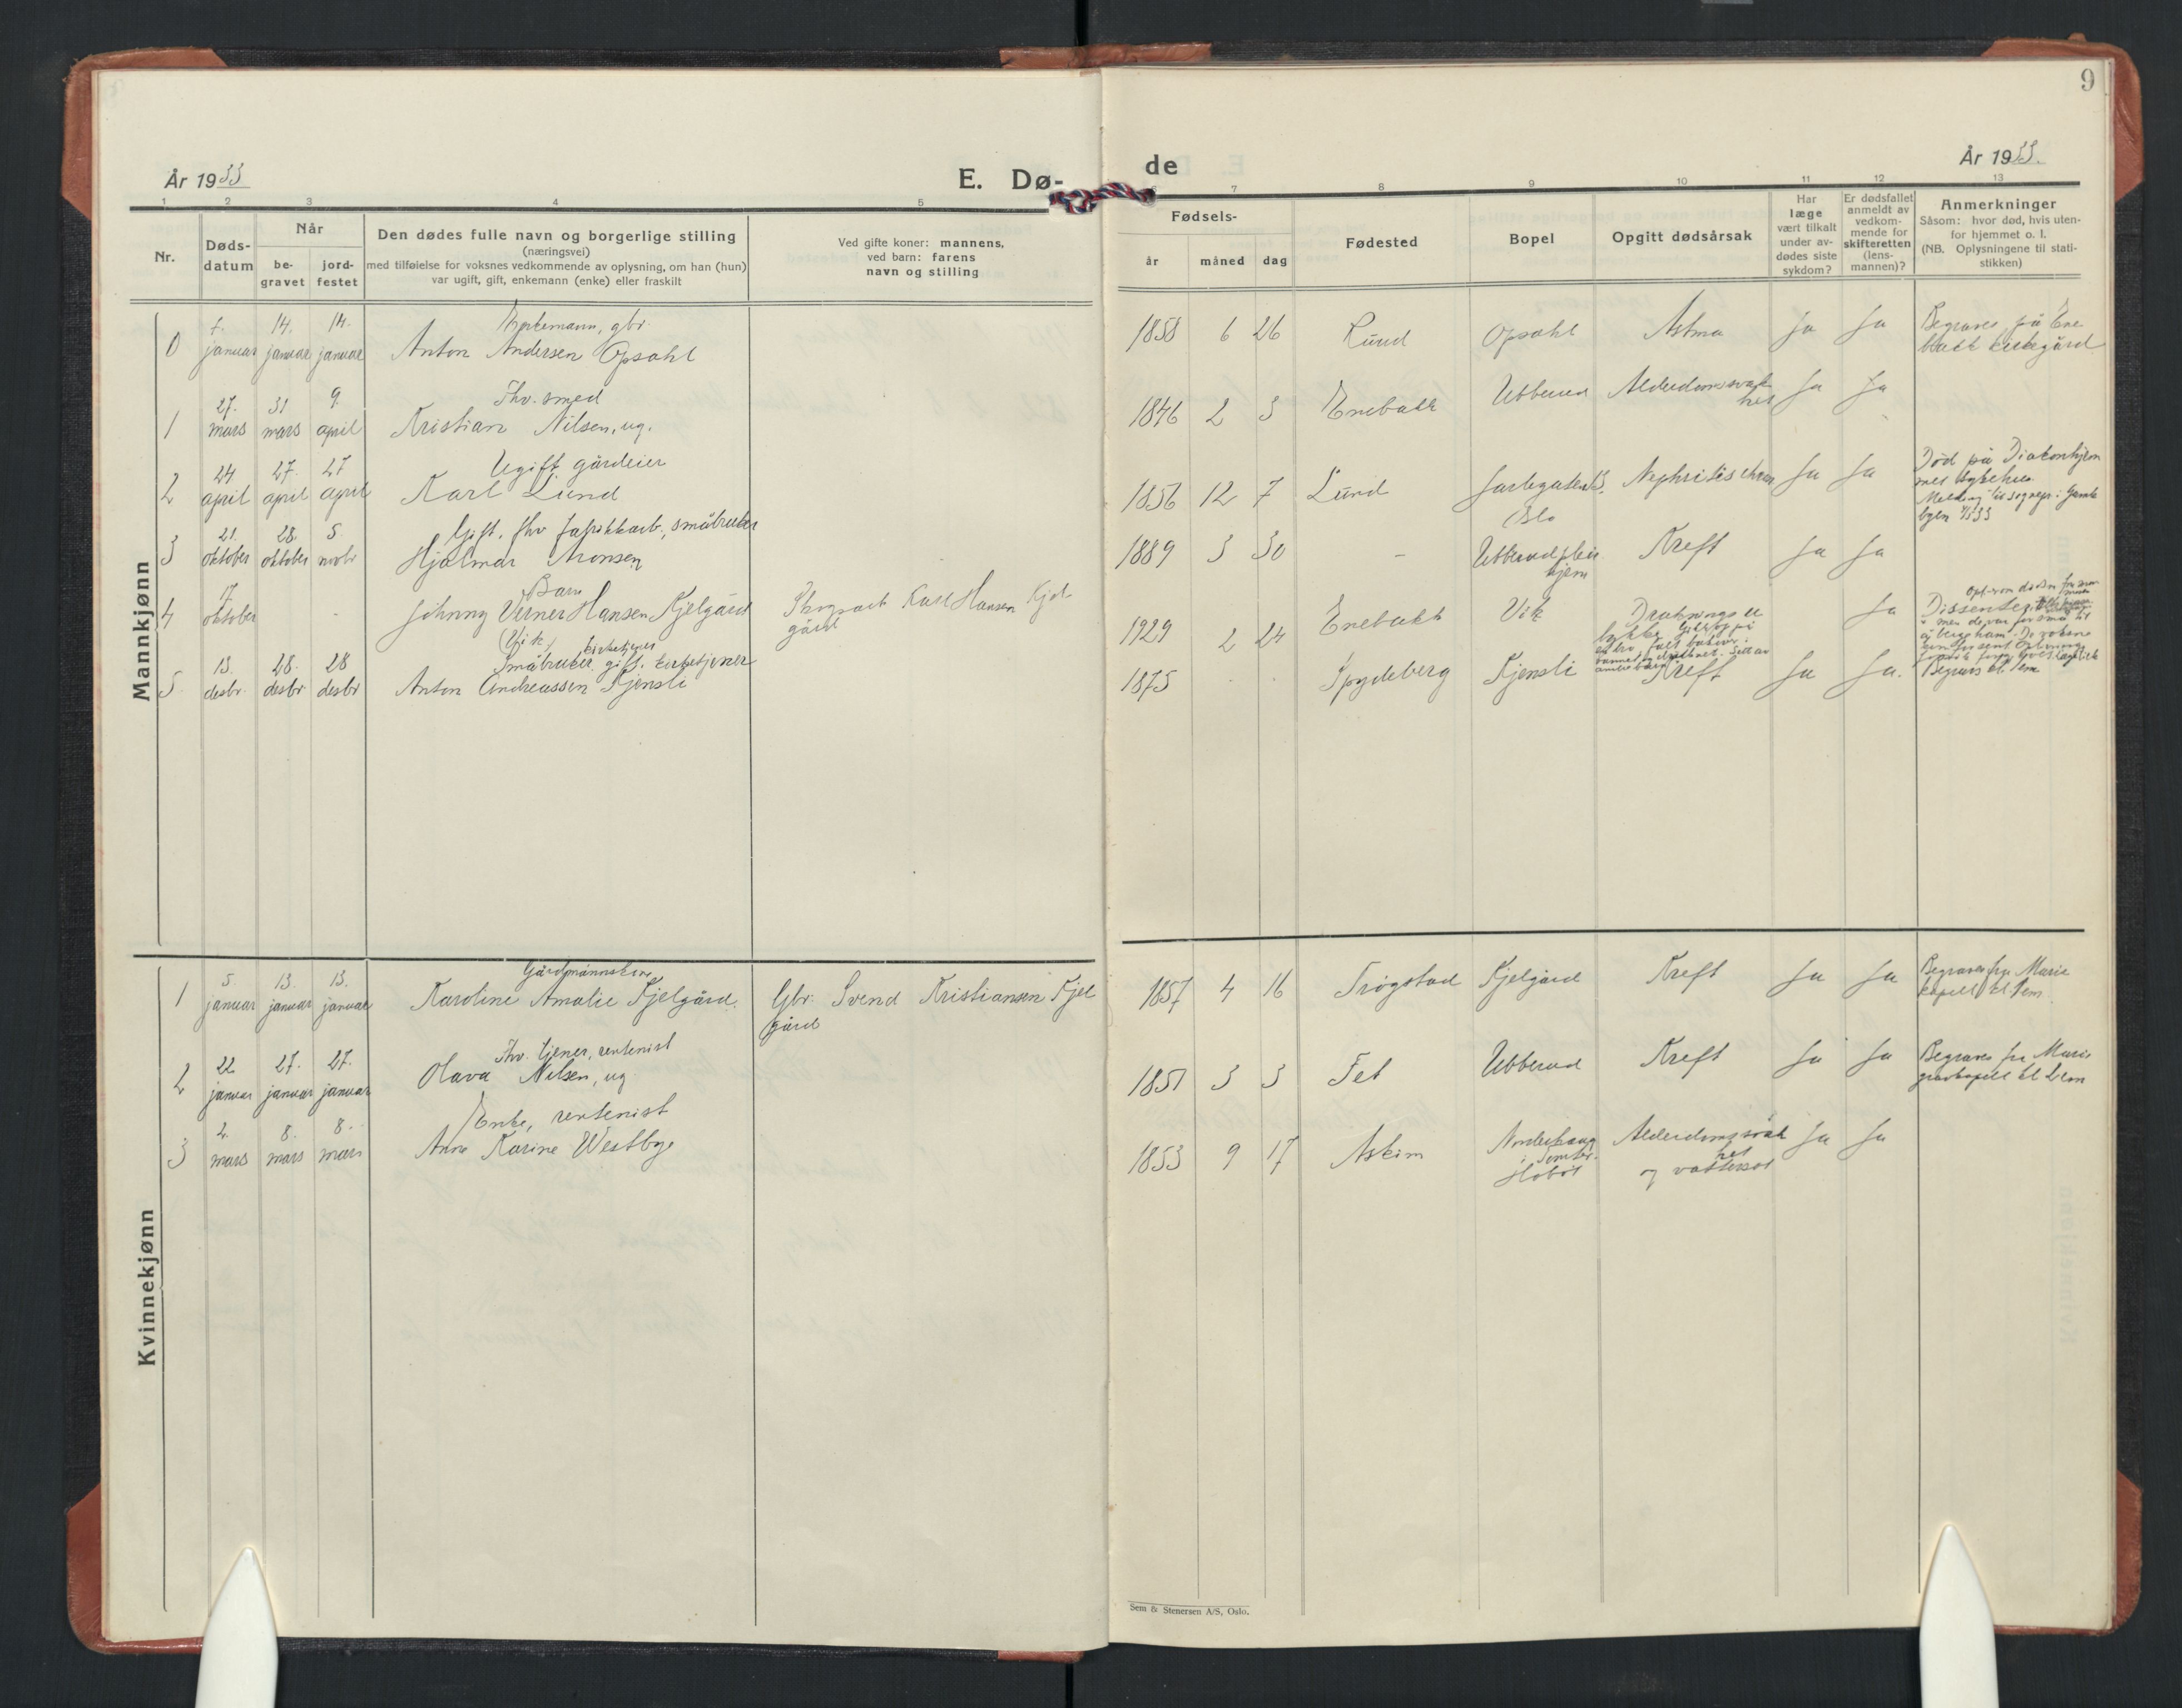 9
År 1933
E. Dø-
de
År 1933.
1 2 3 4 5
6 7 8 9 10 11 12 13
Nr.
Døds-
datum
Når
be-
gravet
jord-
festet
Den dødes fulle navn og borgerlige stilling
(næringsvei)
med tilføielse for voksnes vedkommende av oplysning, om han (hun)
var ugift, gift, enkemann (enke) eller fraskilt
Ved gifte koner: mannens,
ved barn: farens
navn og stilling
Fødsels-
år måned dag
Fødested
Bopel
Opgitt dødsårsak
Har
læge
vært tilkalt
under av-
dødes siste
sykdom?
Er dødsfallet
anmeldt av
vedkom-
mende for
skifteretten
(lens-
mannen)?
Anmerkninger
Såsom: hvor død, hvis uten-
for hjemmet o. l.
(NB. Oplysningene til stati-
stikken)
Mannkjønn
14. 14. Enkemann, gbr.
0 januar januar januar Anton Andersen Opsahl
1858 6 26 Lund Opsahl Astma Ja Ja Begraves på Ene
bakk kirkegård
27. 31 9. Fhv. smed
1 mars mars april Kristian Nilsen, ug.
1846 2 3 Enebakk Ubberud Alderdomssvak
het Ja Ja
24 27. 27 Ugift gårdeier
2 april april april Karl Lund
1856 12 7 Lund Oslo Nephritis chron Ja Ja Død på Diakonhjem
mets sykehus.
21. 28. 5. Gift, fhv fabrikkarb., småbruker
3 oktober oktober novbr Hjalmar Aronsen
1889 3 30 - Ubberud pleie
hjem Kreft Ja Ja
17 Barn
4 oktober - Johnny Verner Hansen Kjelgård
(Vik)
Skogsarb Karl Hansen Kjel
gård
1929 2 24 Enebakk Vik Druknings u
lykke Ja Dissenter
13. 28. 28 Småbruker, gift, kirketjener
kirketjener
5. desbr. desbr desbr Anton Andreassen Kjensli
1875 - - Spydeberg Kjensli Kreft Ja Ja.
Kvinnekjønn
5. 13. 13. Gårdmannskone
1 januar januar januar Karoline Amalie Kjelgård.
Gbr. Svend Kristiansen Kjel
gård
1857 4 16 Trøgstad Kjelgård Kreft Ja Ja Begraves fra Marie
kapell
22. 27. 27. Fhv. tjener, rentenist
2 januar januar januar Olava Nilsen, ug
1851 3 3 Fet Ubberud Kreft Ja Ja Begraves fra Marie
gravkapell
2. 8. 8. Enke, rentenist
3 mars mars mars Anne Karine Westbye
1853 9 17 Askim Hobøl Alderdomssvak
het
og vattersot Ja Ja
Sem & Stenersen A/S, Oslo.